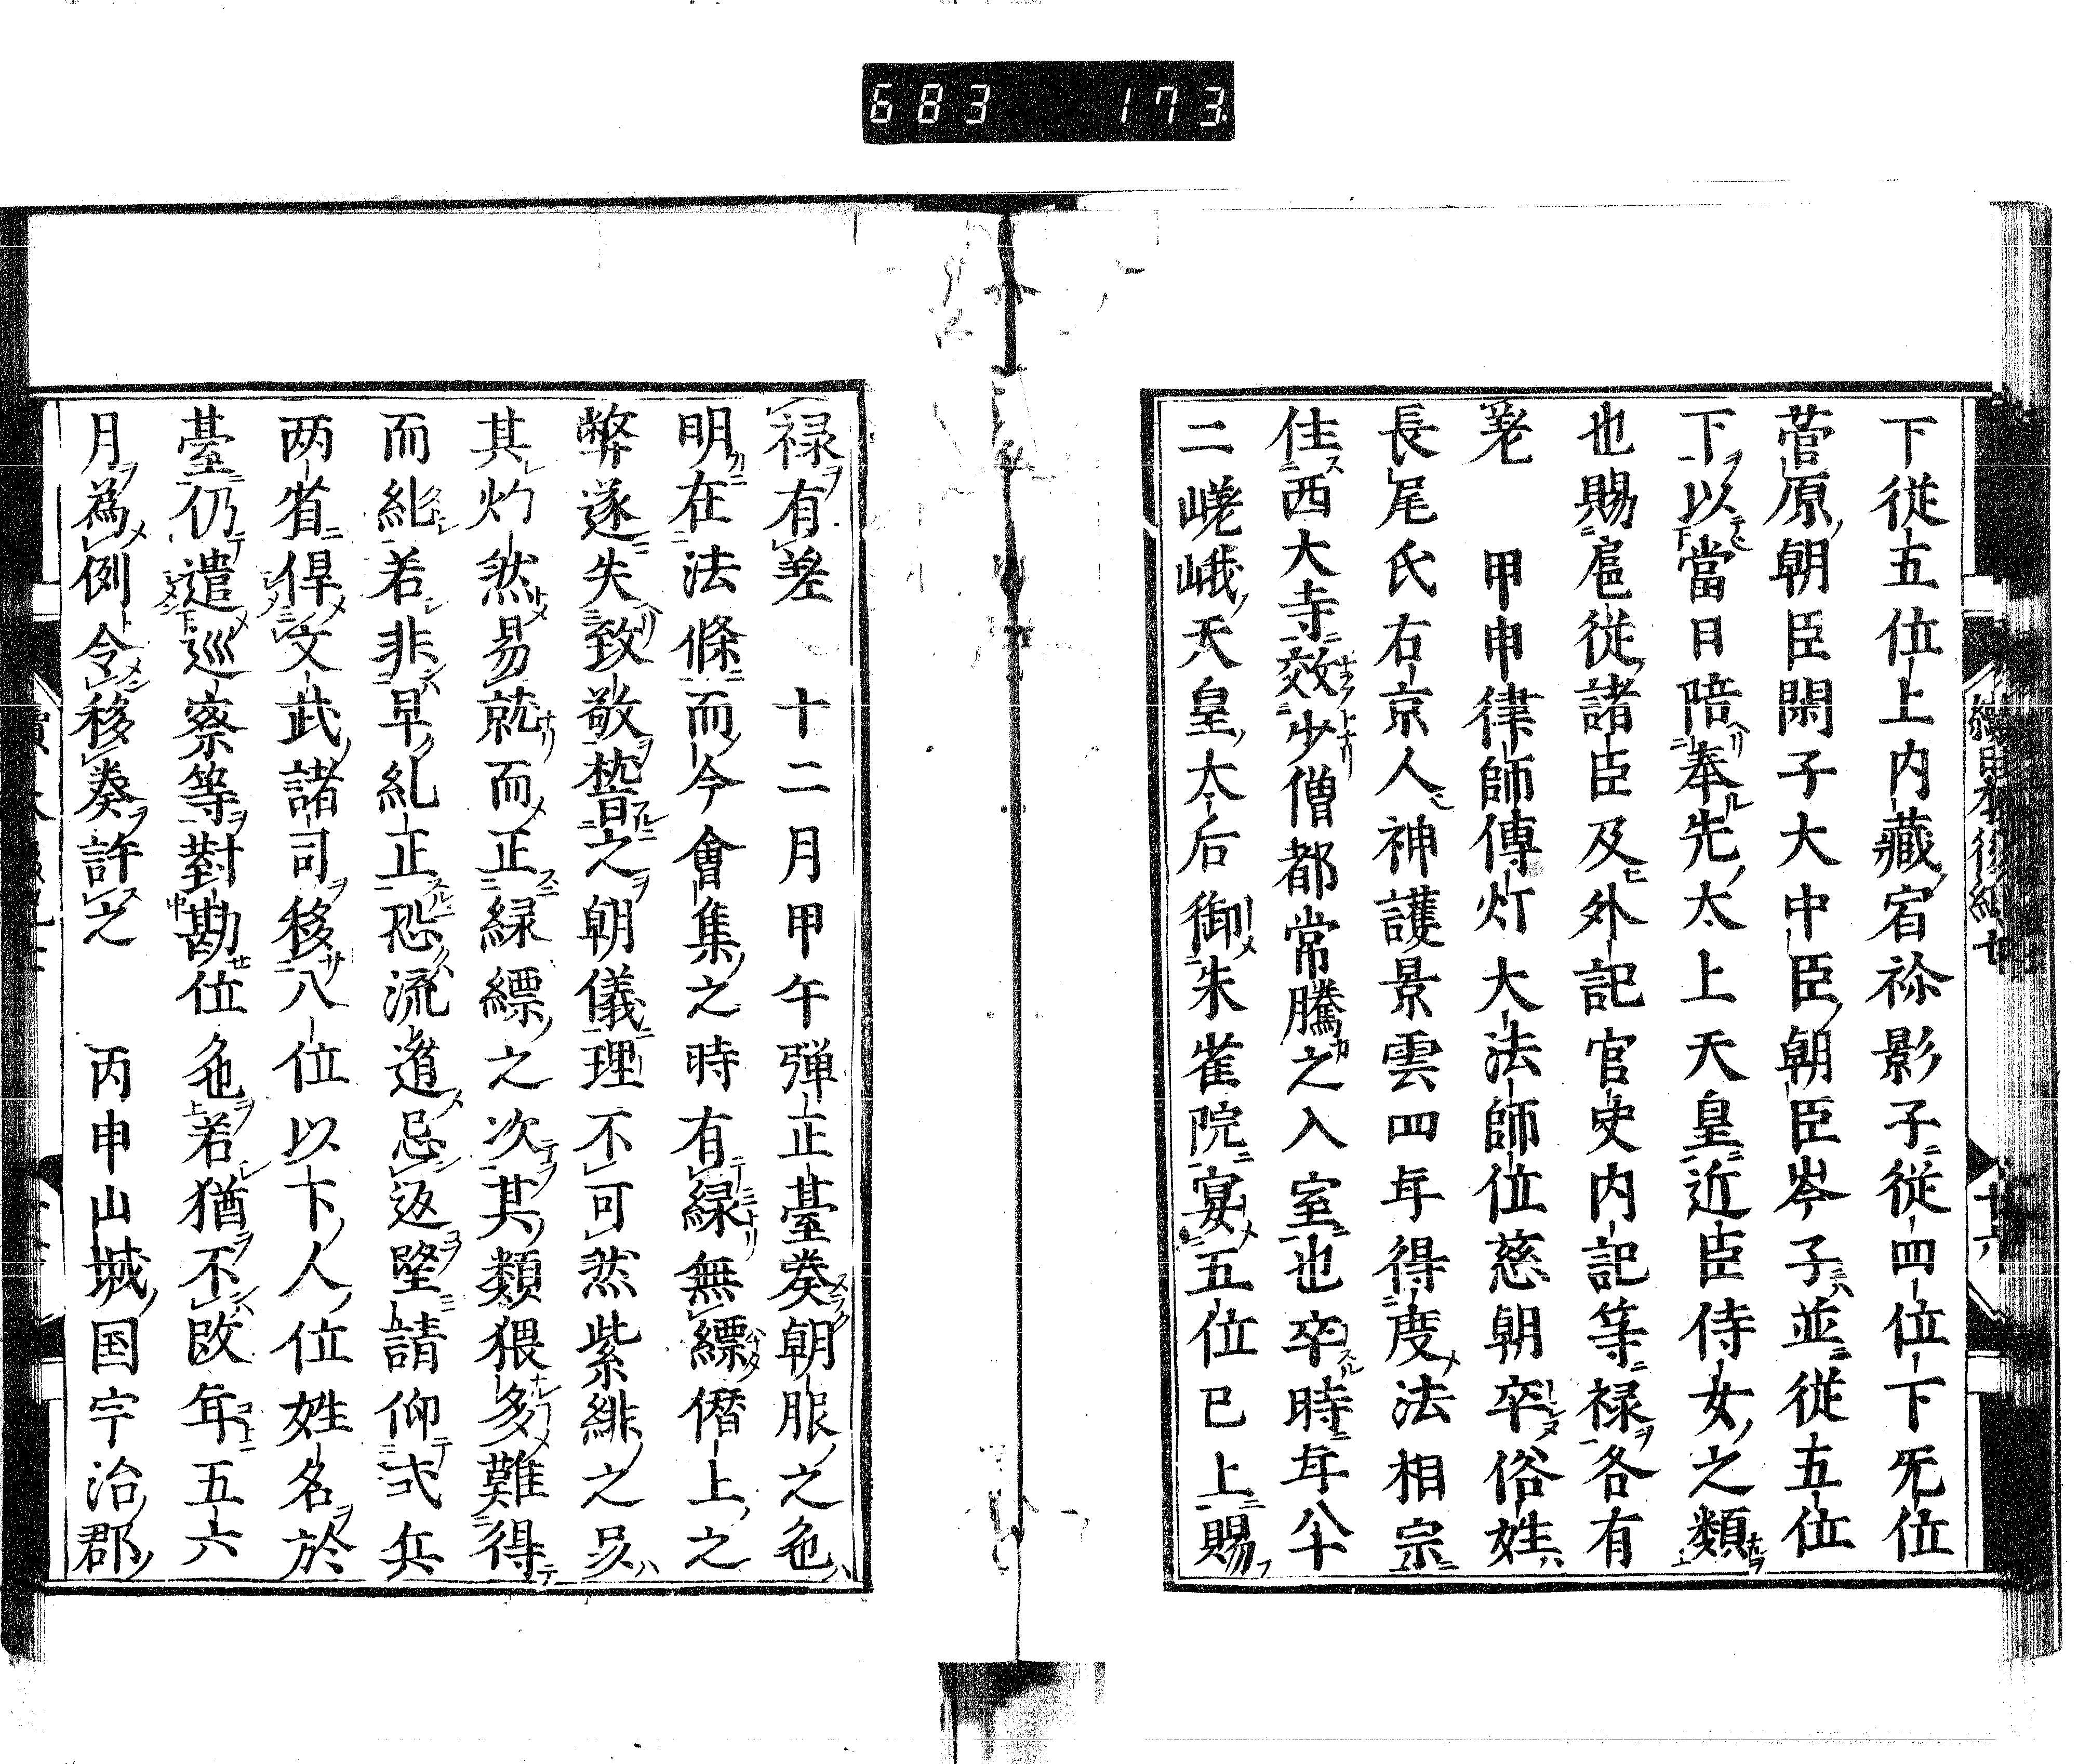 683 173
下従五位上内藏宿祢影子従四位下无位
菅原朝臣閑子大中臣朝臣岑子並従五位
下以當日陪奉先太上天皇近臣侍女之類
也賜扈従諸臣及外記官史内記等禄各有
差 甲申律師傳灯大法師位慈朝卒俗姓
長尾氏右京人神護景雲四年得度法相宗
住西大寺效少僧都常騰之入室也卒時年八十
二 嵯峨天皇太后御朱雀院宴五位已上賜
禄有差 十二月甲午弾正臺奏朝服之色
明在法條而今會集之時有緑無縹僭上之
弊遂失致敬揩之朝儀理不可然紫緋之号
其灼然易就而正緑縹之次其類猥多難得
而糺若非早糺正恐流遁忘返望請仰式兵
两省俾文武諸司移八位以下人位姓名於
臺仍遣巡察等對勘位色若猶不改年五六
月為例令移奏許之 丙申山城国宇治郡